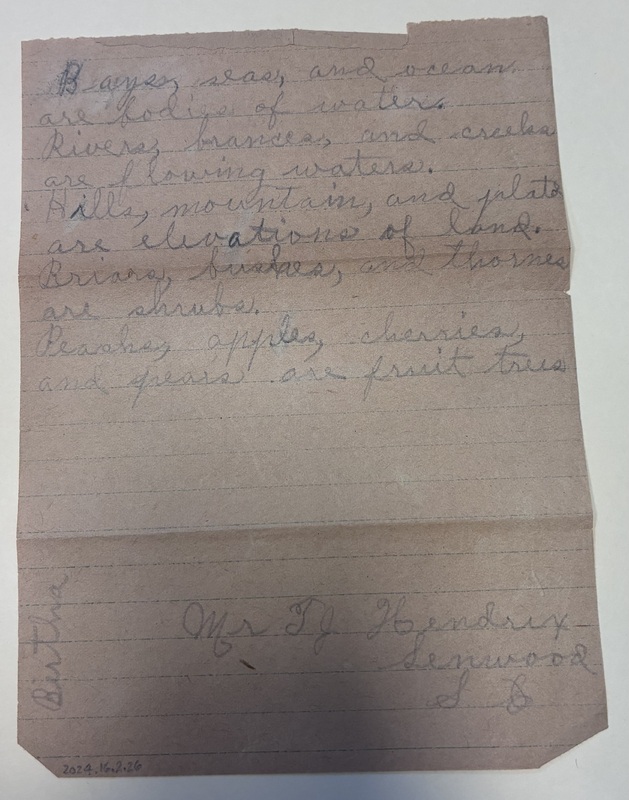 Bays, seas, and ocean
are bodies of water.
Rivers, brances, and creeks
are flowing waters.
Hills, mountain, and plats
are elevations of land.
Briars, bushes, and thornes
are shrubs.
Peashes, apples, cherries,
and pears are fruit trees
Mr TJ Hendrix
Lenwood
S C
Birtha
2024.16.2.26